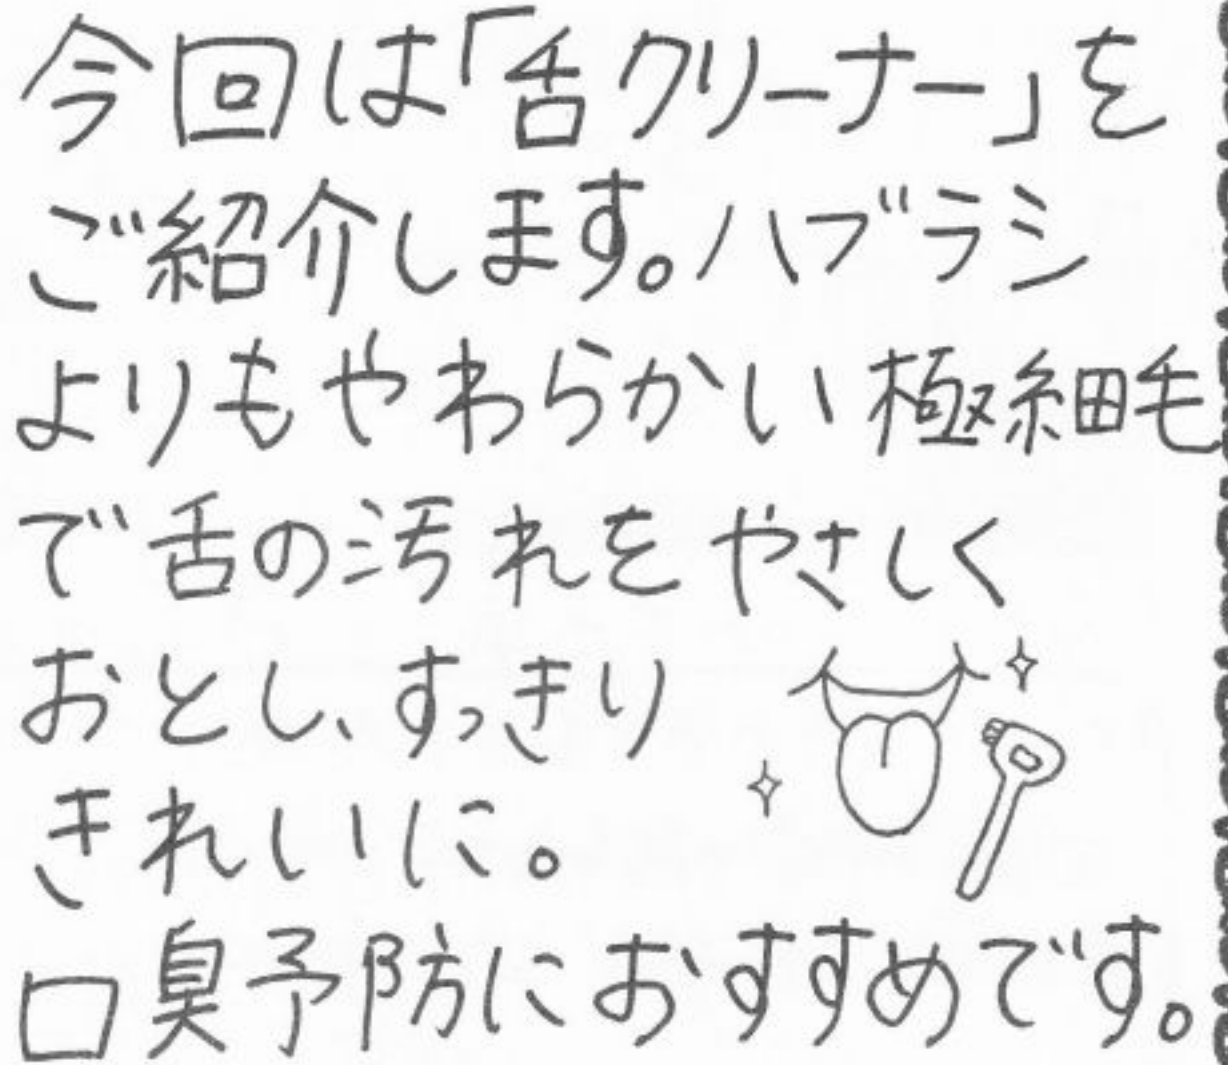 今回は「舌クリーナー」を
ご紹介します。ハブラシ
よりもやわらかい極細毛
で舌の汚れをやさしく
おとし、すっきり
きれいに。
口臭予防におすすめです。